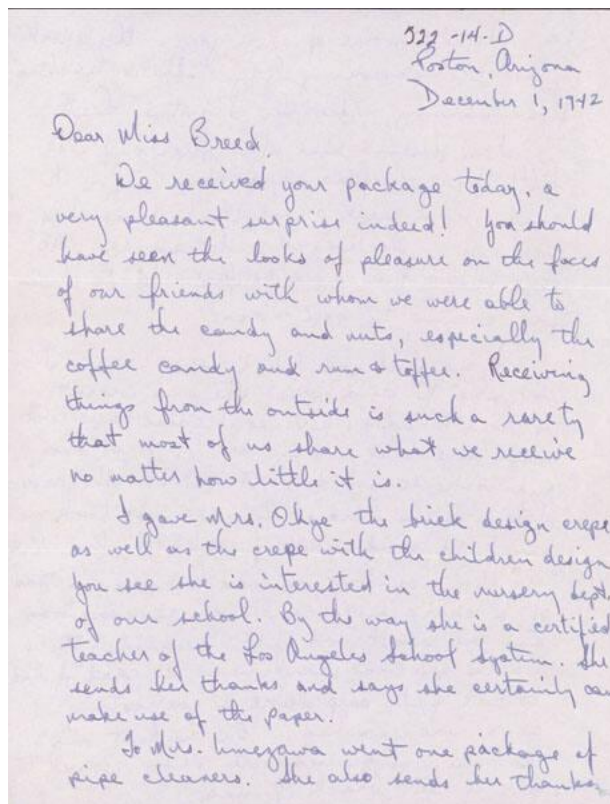 322-14-D
Poston, Arizona
December 1, 1942
Dear Miss Breed,
We received your package today, a
very pleasant surprise indeed! You should
have seen the looks of pleasure on the faces
of our friends with whom we were able to
share the candy and nuts, especially the
coffee candy and rum & toffee. Receiving
things from the outside is such a rarety
that most of us share what we receive
no matter how little it is.
I gave Mrs. the brick design crepe
as well as the crepe with the children design
You see she is interested in the nursery dept.
of our school. By the way she is a certified
teacher of the Los Angeles School System. She
sends her thanks and says she certainly can
make use of the paper.
To Mrs. Umezawa went one package of
pipe cleaners. She also sends her thanks.